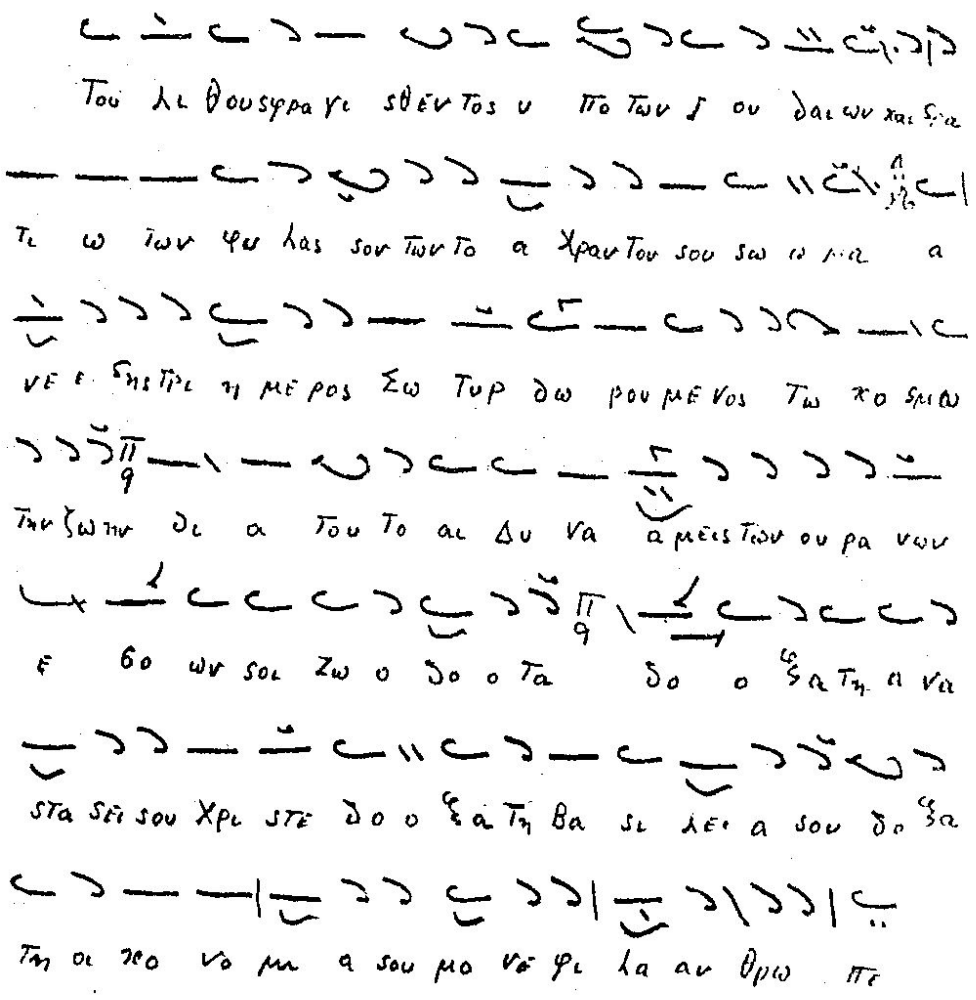 Του λι θουσφρα γι σθεν τος υ πο των Ι ου δαι ων και στρα
τι ω των φυ λασ σον των το α χραν τον σου σω ω μα α
νε ε στης τρι η με ρος Σω τηρ δω ρου με νος τω κο σμω
την ζω ην δι α του το αι Δυ να α μεις των ου ρα νων
ε βο ων σοι Ζω ο δο ο τα δο ο ξα τη α να
στα σει σου Χρι στε δο ο ξα τη Βα σι λει α σου δο ξα
τη οι κο νο μι α σου μο νε φι λα αν θρω πε